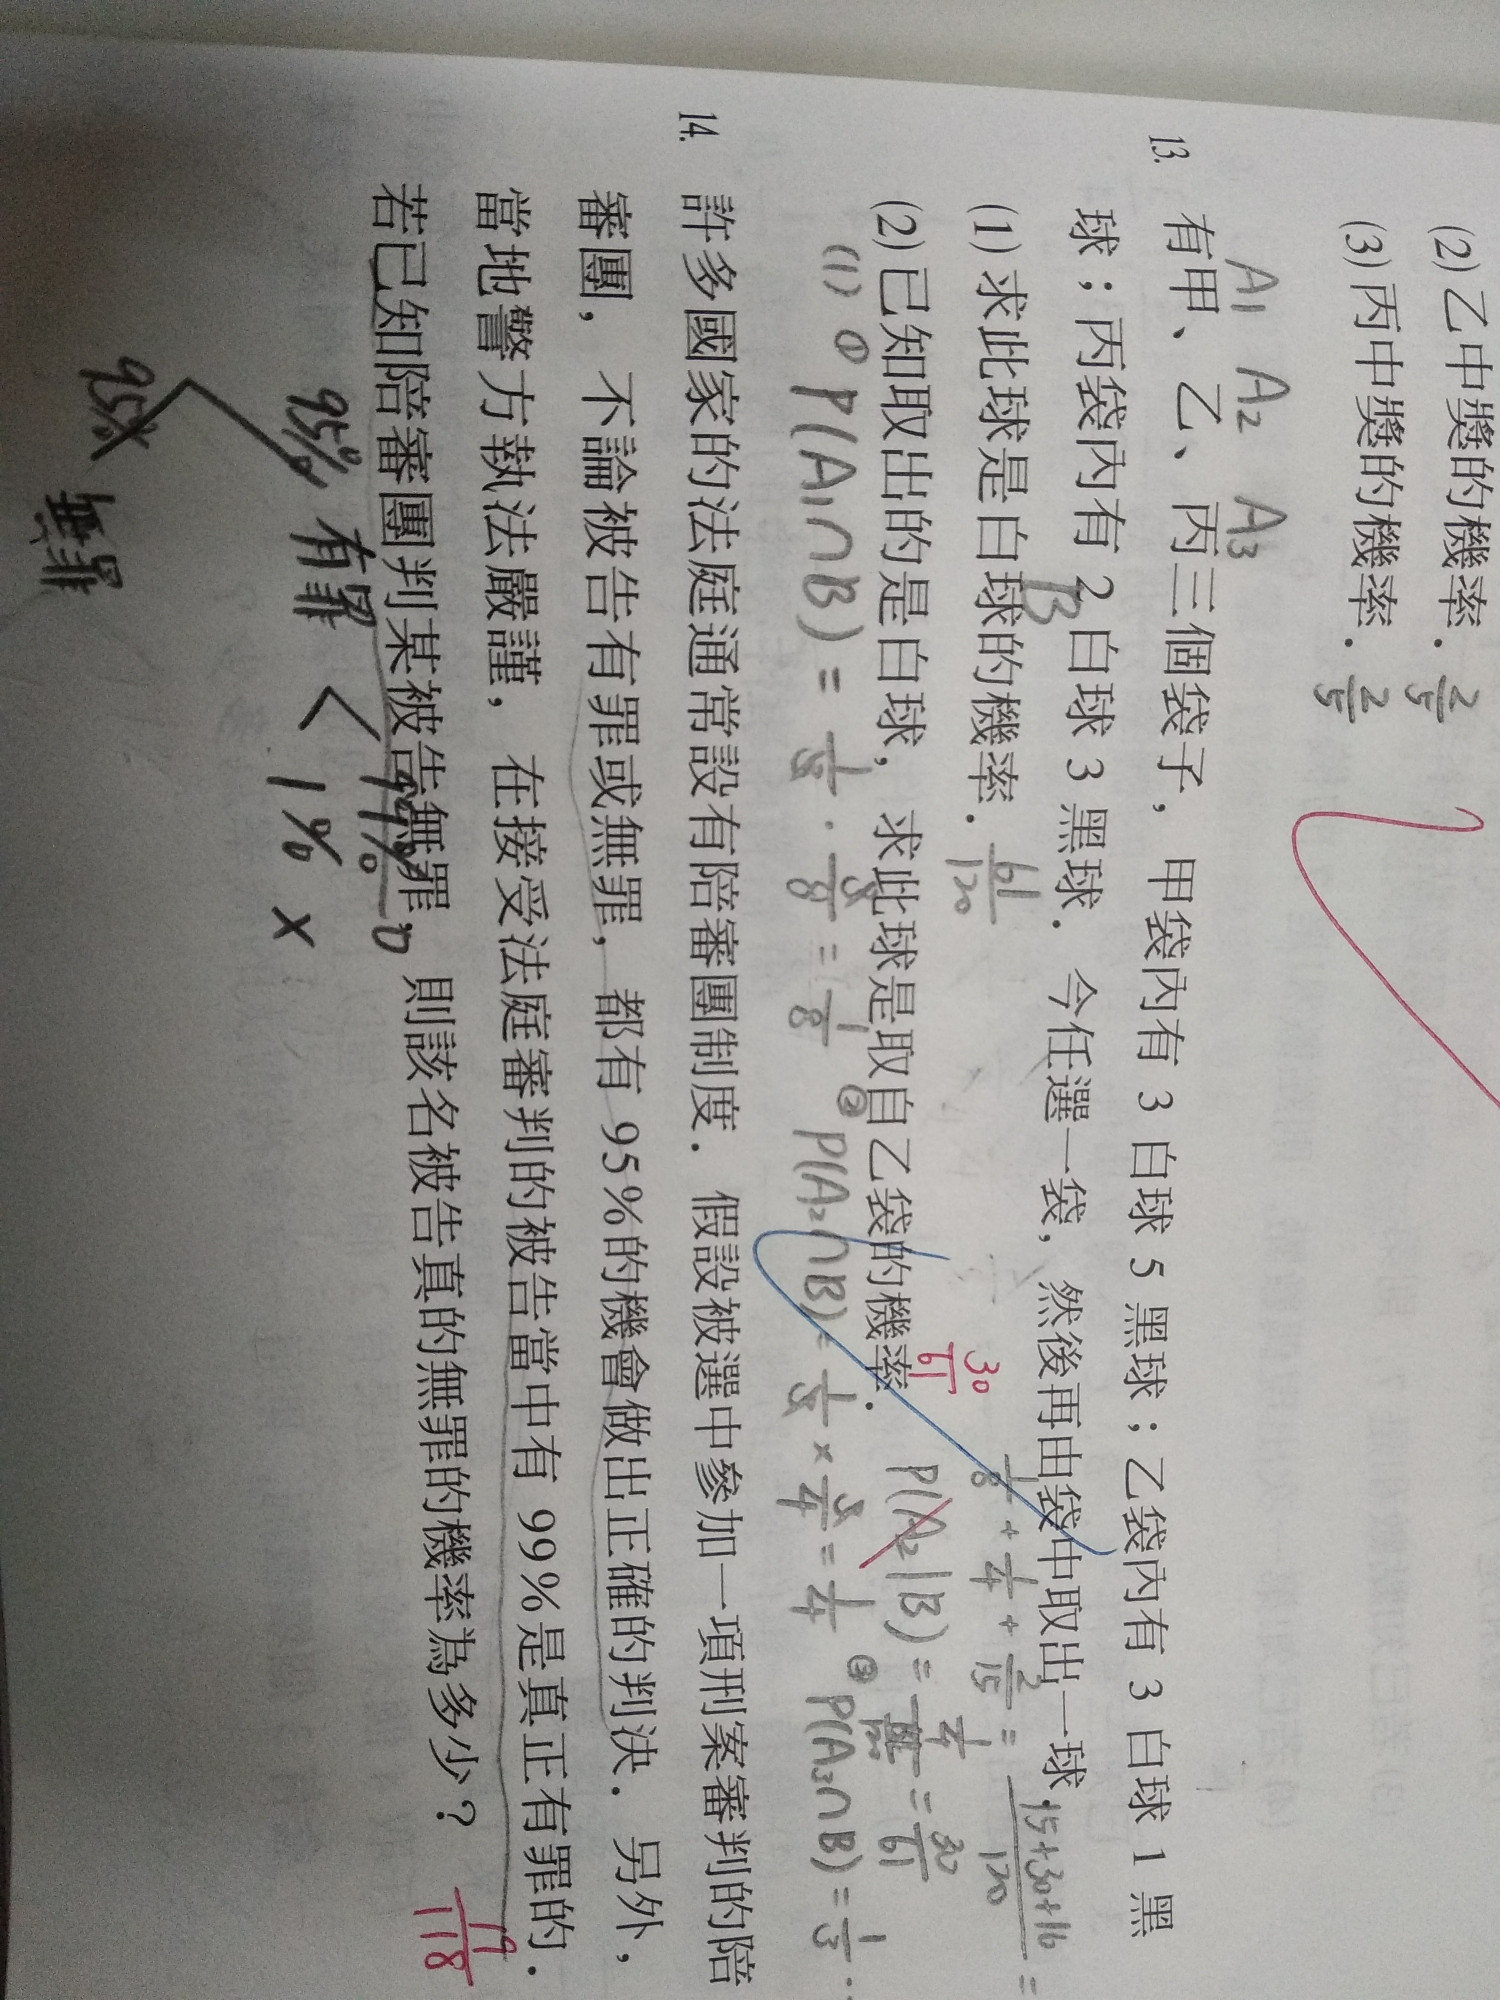 (2)乙中獎的機率. 2/5
(3)丙中獎的機率. 2/5
A1 A2 A3
13. 有甲、乙、丙三個袋子，甲袋內有 3 白球 5 黑球；乙袋內有 3 白球 1 黑
球；丙袋內有 2 白球 3 黑球. 今任選一袋，然後再由袋中取出一球.
B
(1)求此球是白球的機率. 61/120
1/8 + 1/4 + 2/15 = 15+30+16/120 =
(2)已知取出的是白球，求此球是取自乙袋的機率. 30/61
P(A2|B) = = 30/61
(1) ① P(A1∩B) = 1/3 · 3/8 = 1/8 ② P(A2∩B) = 1/3 × 3/4 = 1/4 ③ P(A3∩B) = 1/3 ·
14. 許多國家的法庭通常設有陪審團制度. 假設被選中參加一項刑案審判的陪
審團，不論被告有罪或無罪，都有 95%的機會做出正確的判決. 另外，
當地警方執法嚴謹，在接受法庭審判的被告當中有 99%是真正有罪的.
若已知陪審團判某被告無罪，則該名被告真的無罪的機率為多少？ 19/118
95% 有罪 < 99% 0
1% ×
95% 無罪